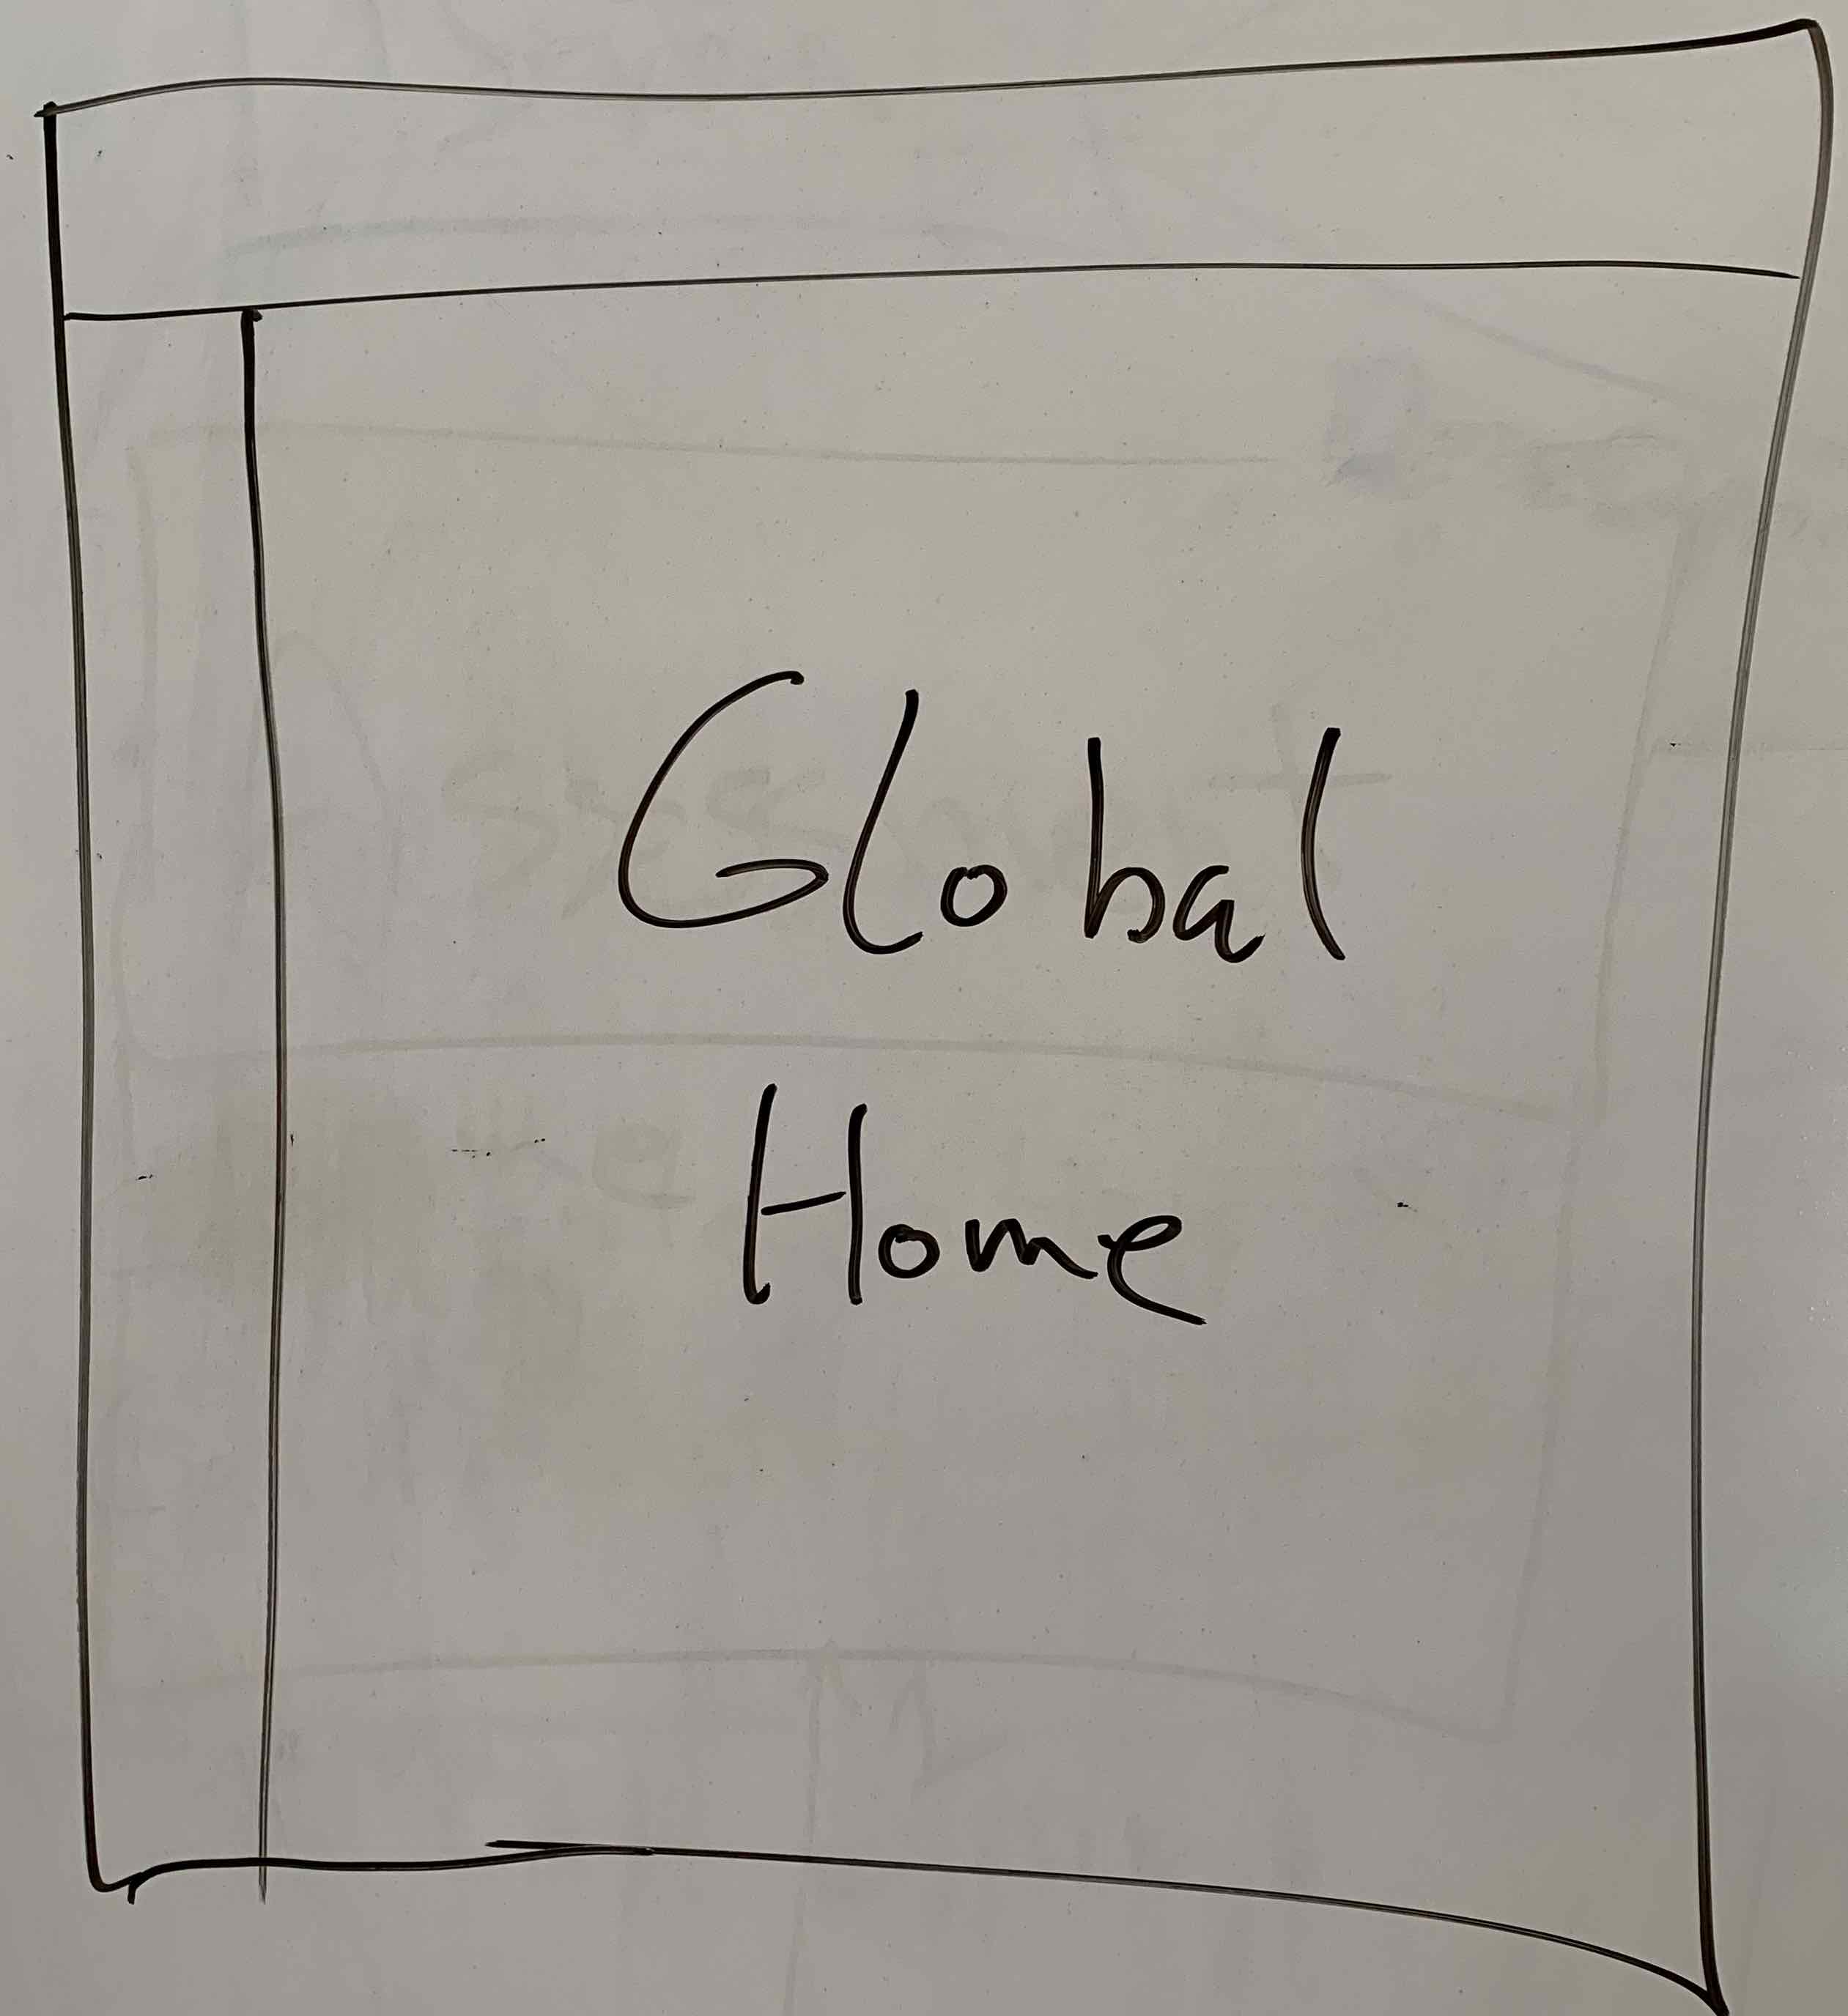 Global
Home